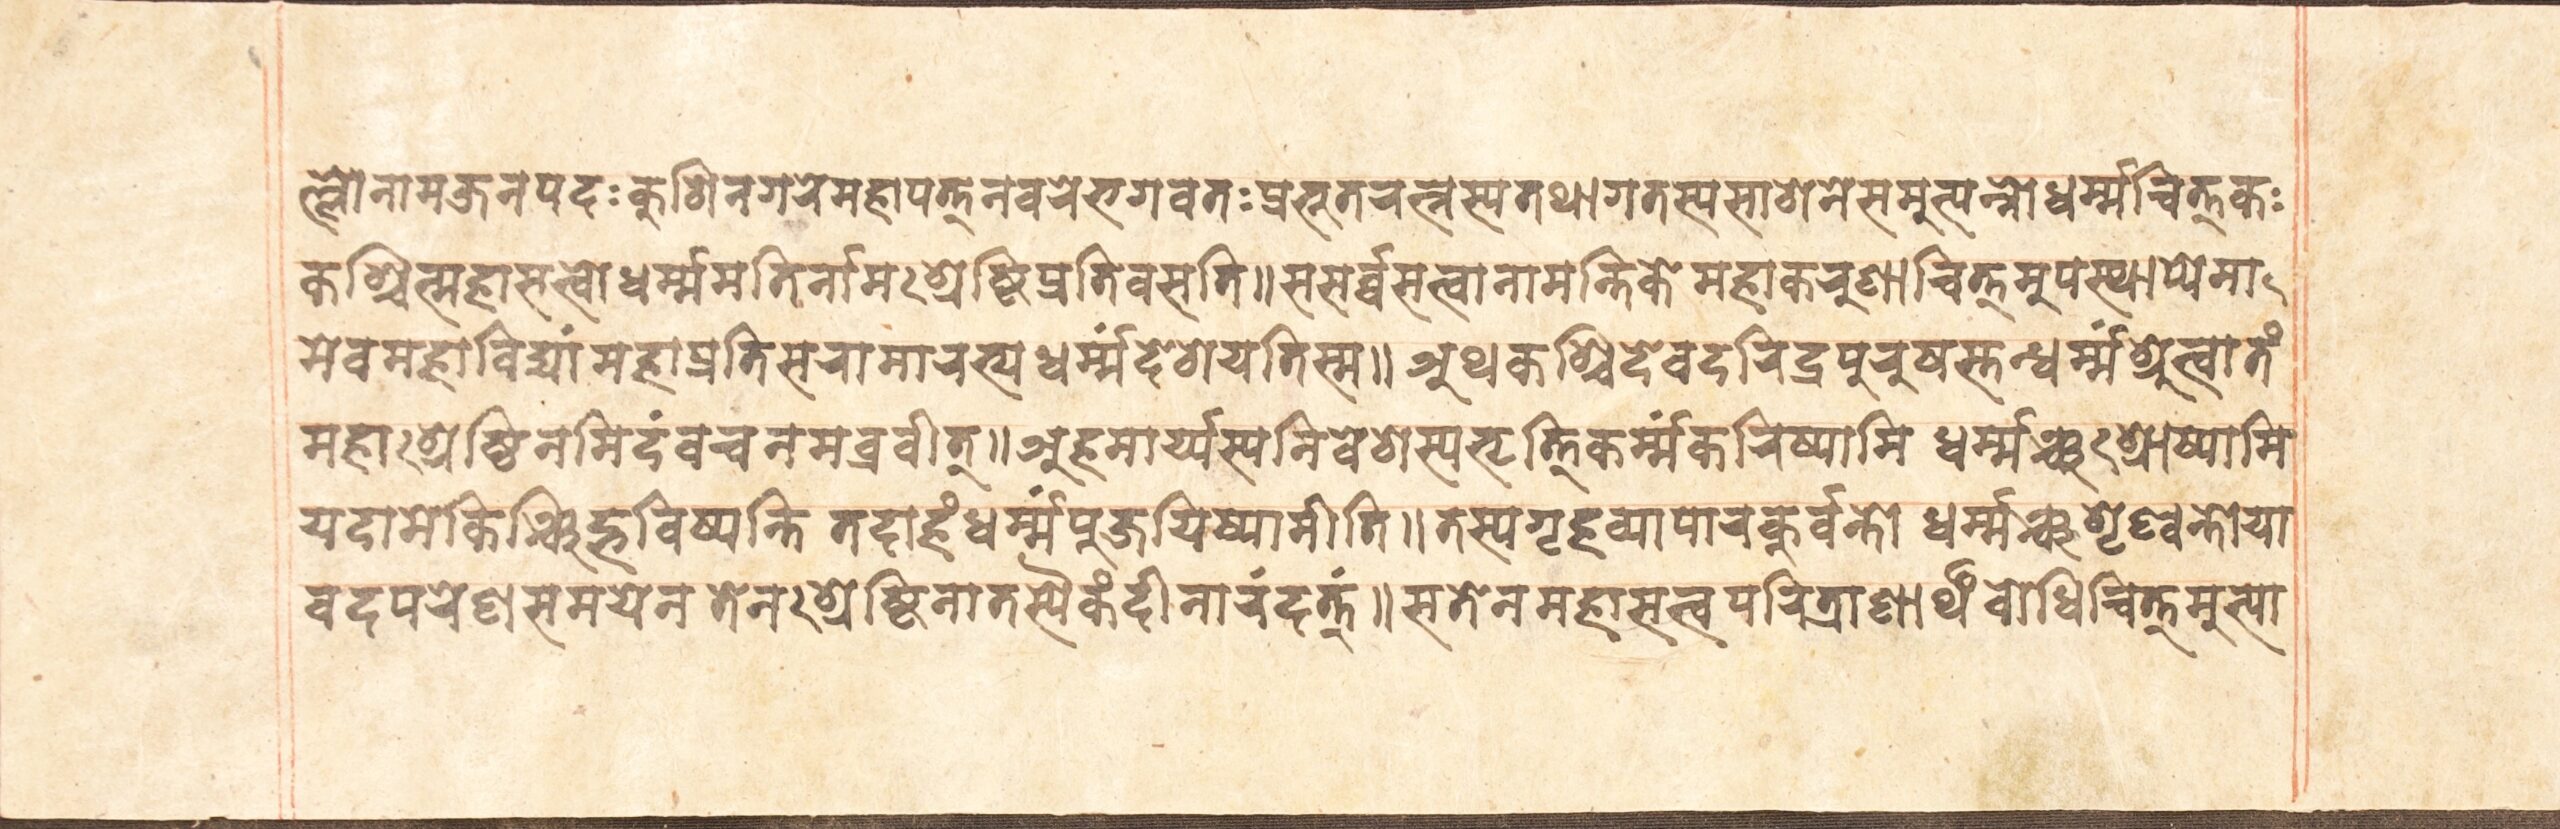 ल्लो नाम जनपदः कुशिनगरे महापत्तनवरे भगवतः प्रभूतरत्नस्य तथागतस्य साशने समुत्पन्नो धर्म्मचित्तकः
कश्चित्महासत्त्वो धर्म्ममतिर्नाम श्रेष्टि प्रतिवसति॥ स सर्व्वसत्वानामन्तिके महाकरुणाचित्तमुपस्थाप्येमा
मेव महाविद्यां महाप्रतिसरामारभ्य धर्म्मं देशेयति स्म॥ अथ कश्चिदेव दरिद्रपुरुषस्तन्धर्म्मं श्रुत्वा तं
महाश्रेष्ठिनमिदं वचनमब्रवीत्॥ अहमार्य्यस्य निवेशेस्य भृत्तिकर्म्मं करिष्यामि धर्म्मञ्च श्रोष्यामि
यदा मे किञ्चिद्भविष्यन्ति तदाहं धर्म्मं पुजयिष्यामीति॥ तस्य गृहव्यापारकुर्वन्तो धर्म्मञ्च शृण्वन्तो या
वदपरेण समयेन तेन श्रेष्टिना तस्यैकं दीनारं दत्तं॥ स तेन महासत्वपरित्राणार्थं बोधिचित्तमुत्पा